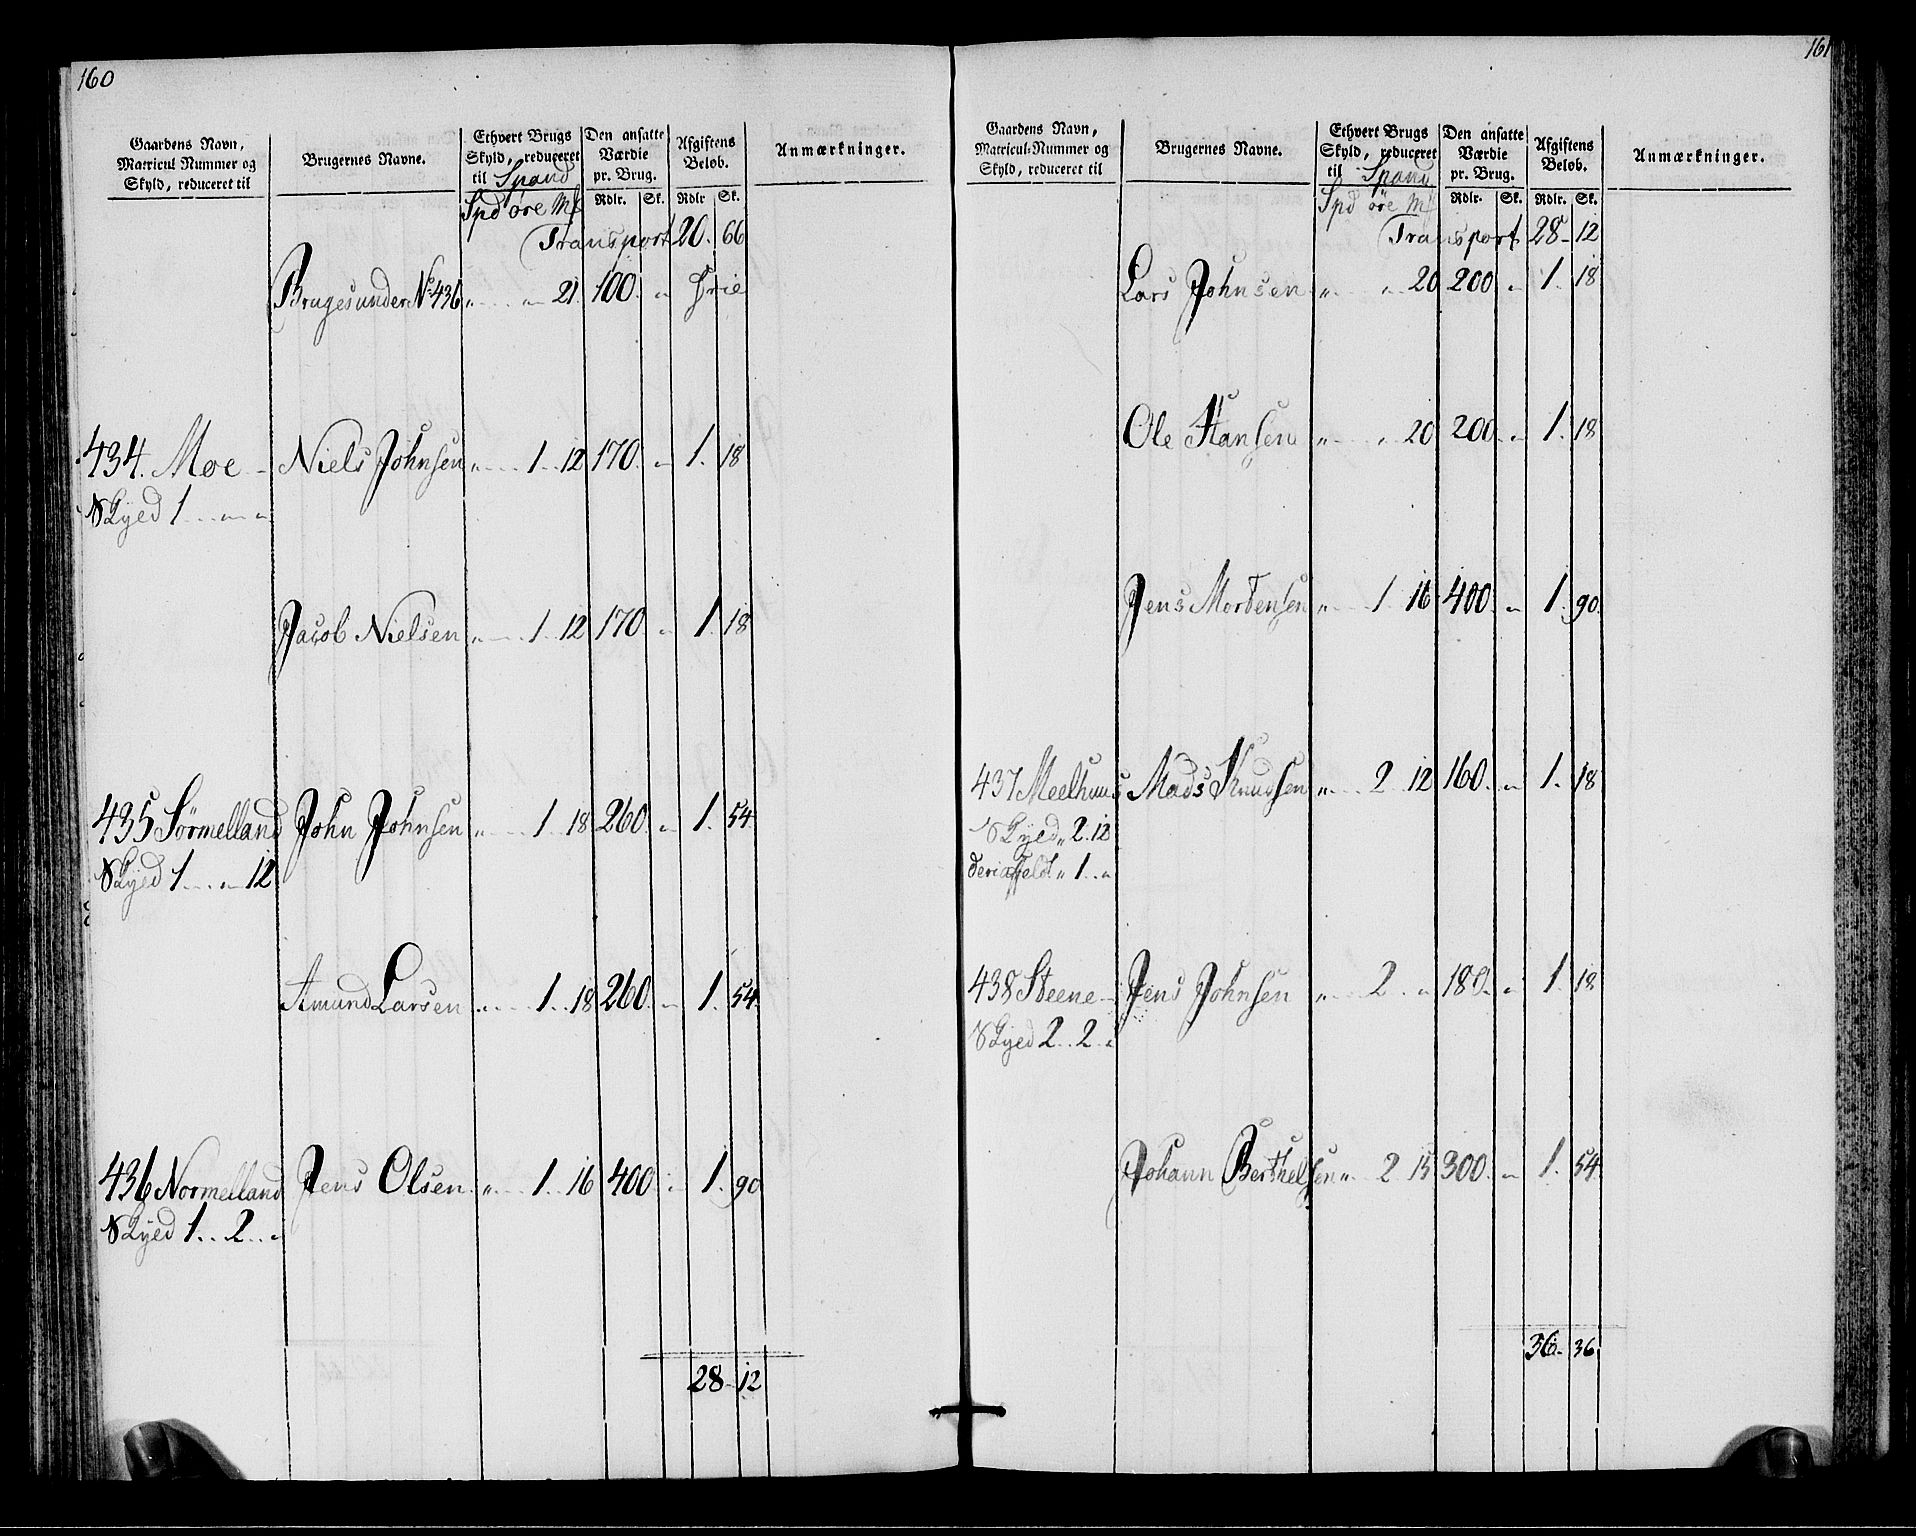 160
Gaardens Navn, Matricul Nummer og Skyld, reduceret til
Brugernes Navne.
Ethvert Brugs Skyld, reduceret til Spand
Den ansatte Værdie pr. Brug.
Afgiftens Beløb.
Anmærkninger.
Rdlr. Sk. Rdlr Sk.
Spd øre Mk
Transport 20. 66
Bruges under No 436 " " 21 100. " Frie
434. Moe - Niels Johnsen " 1 12 170. " 1. 18
Skyed 1 " "
Jacob Nielsen " 1 12 170. " 1. 18
435 Sørmelland John Johnsen " 1 18 260. " 1. 54
Skyed 1 " 12
Amund Larsen " 1 18 260. " 1. 54
436 Normelland Jens Olsen " 1 16 400 " 1. 90
Skyed 1 2 "
28 12
161
Gaardens Navn, Matricul-Nummer og Skyld, reduceret til
Brugernes Navne.
Ethvert Brugs Skyld, reduceret til Spand
Den ansatte Værdie pr. Brug.
Afgiftens Beløb.
Anmærkninger.
Rdlr. Sk. Rdlr. Sk.
Spd øre Mk
Transport 28 12
Lars Johnsen " " 20 200 " 1. 18
Ole Hansen " " 20 200. " 1. 18
Jens Mortensen " 1 16 400. " 1. 90.
437 Meelhuus Mads Knudsen " 2 12 160. " 1. 18
Skyed " 2. 12
" 1 "
438 Steene - Jens Johnsen " 2 " 180. " 1. 18
Skyed 2 2 "
Johann Berthelsen " 2 15 300. " 1. 54
36. 36.